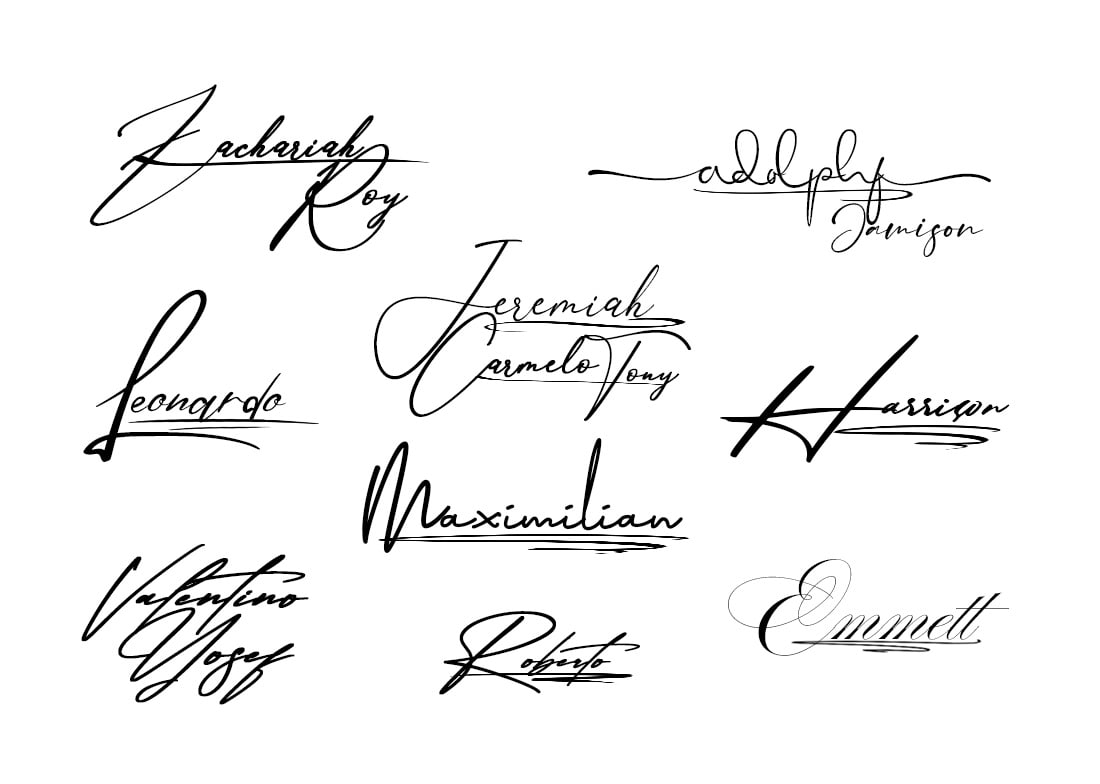 Zachariah
Roy
adolphy
Jamison
Jeremiah
Carmelo Tony
Leonardo
Harrison
Maximilian
Valentino
Yosef
Roberto
Emmett